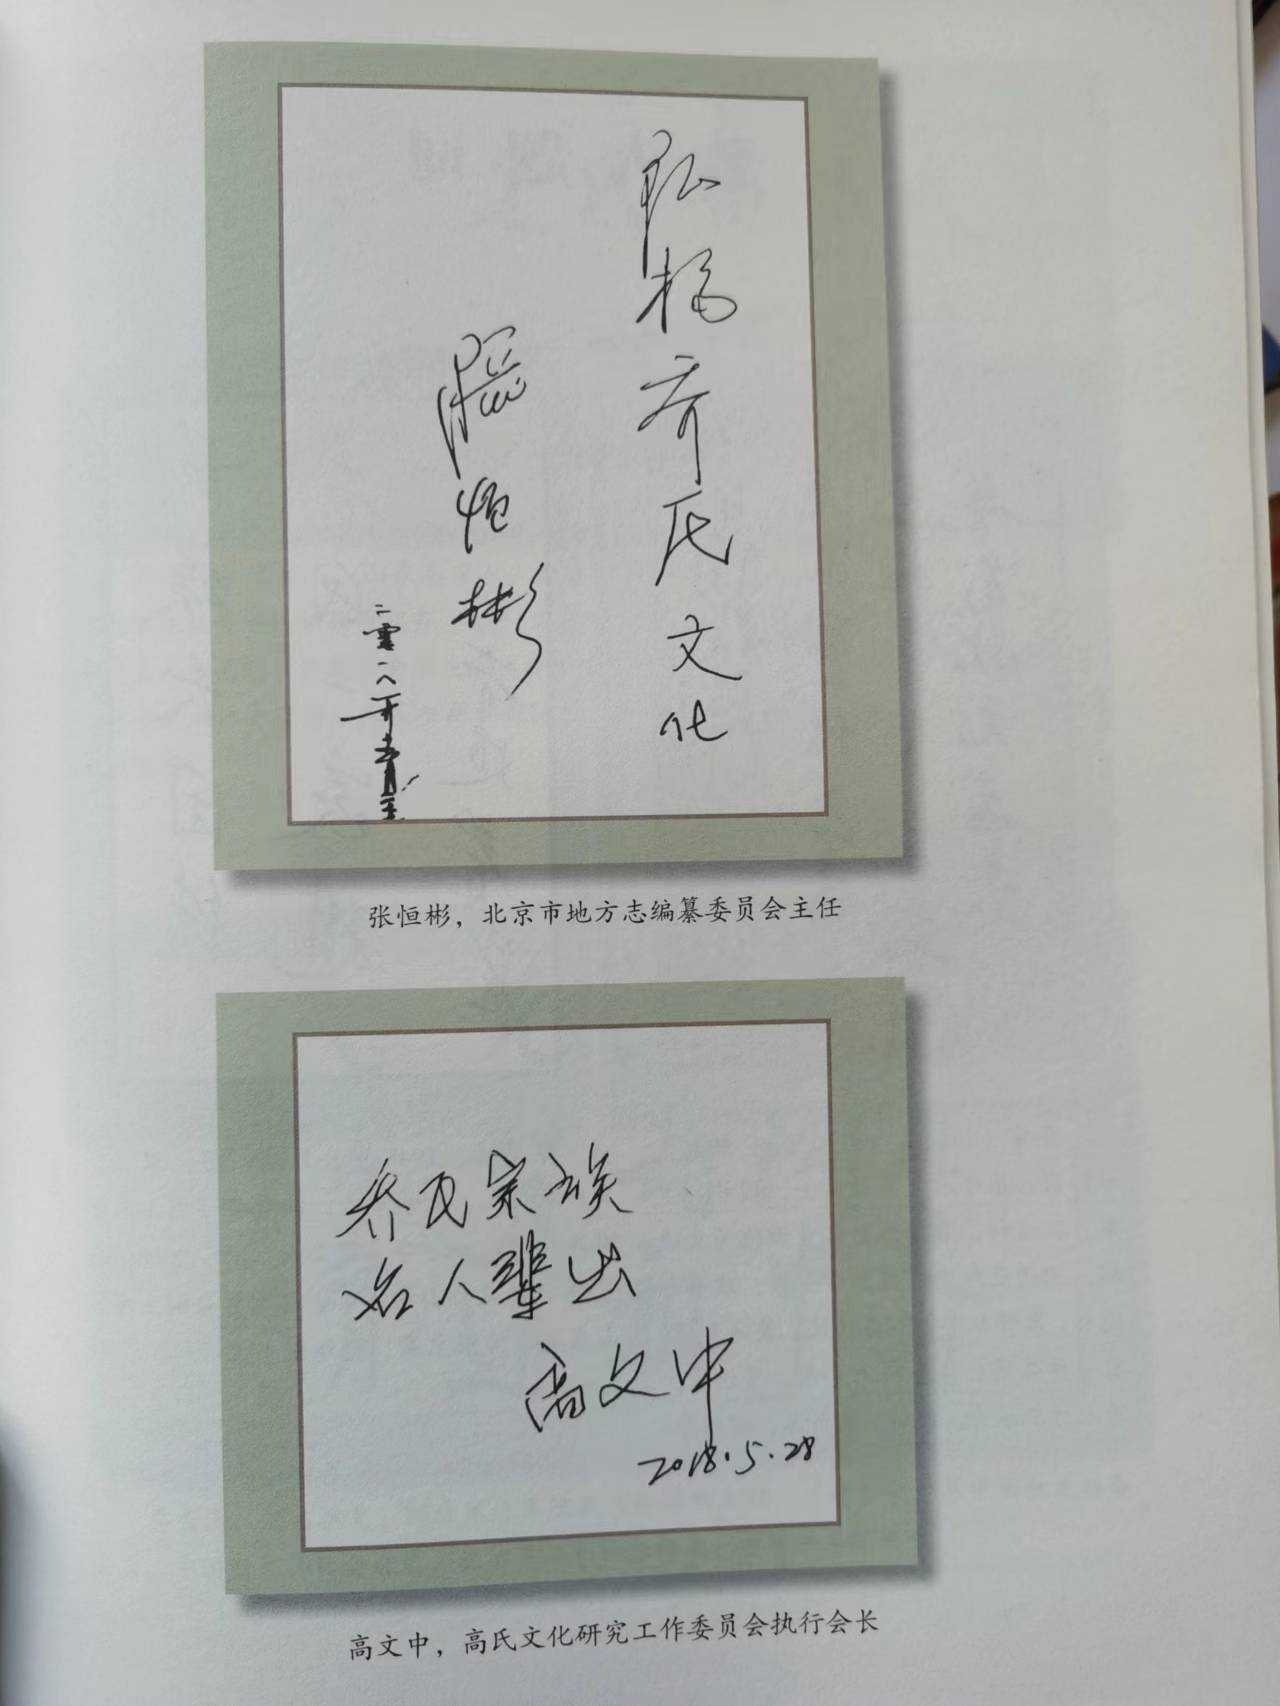 弘扬乔氏文化
张恒彬
二零一八年五月
张恒彬，北京市地方志编纂委员会主任
乔氏宗族
名人辈出
高文中
2018.5.28
高文中，高氏文化研究工作委员会执行会长